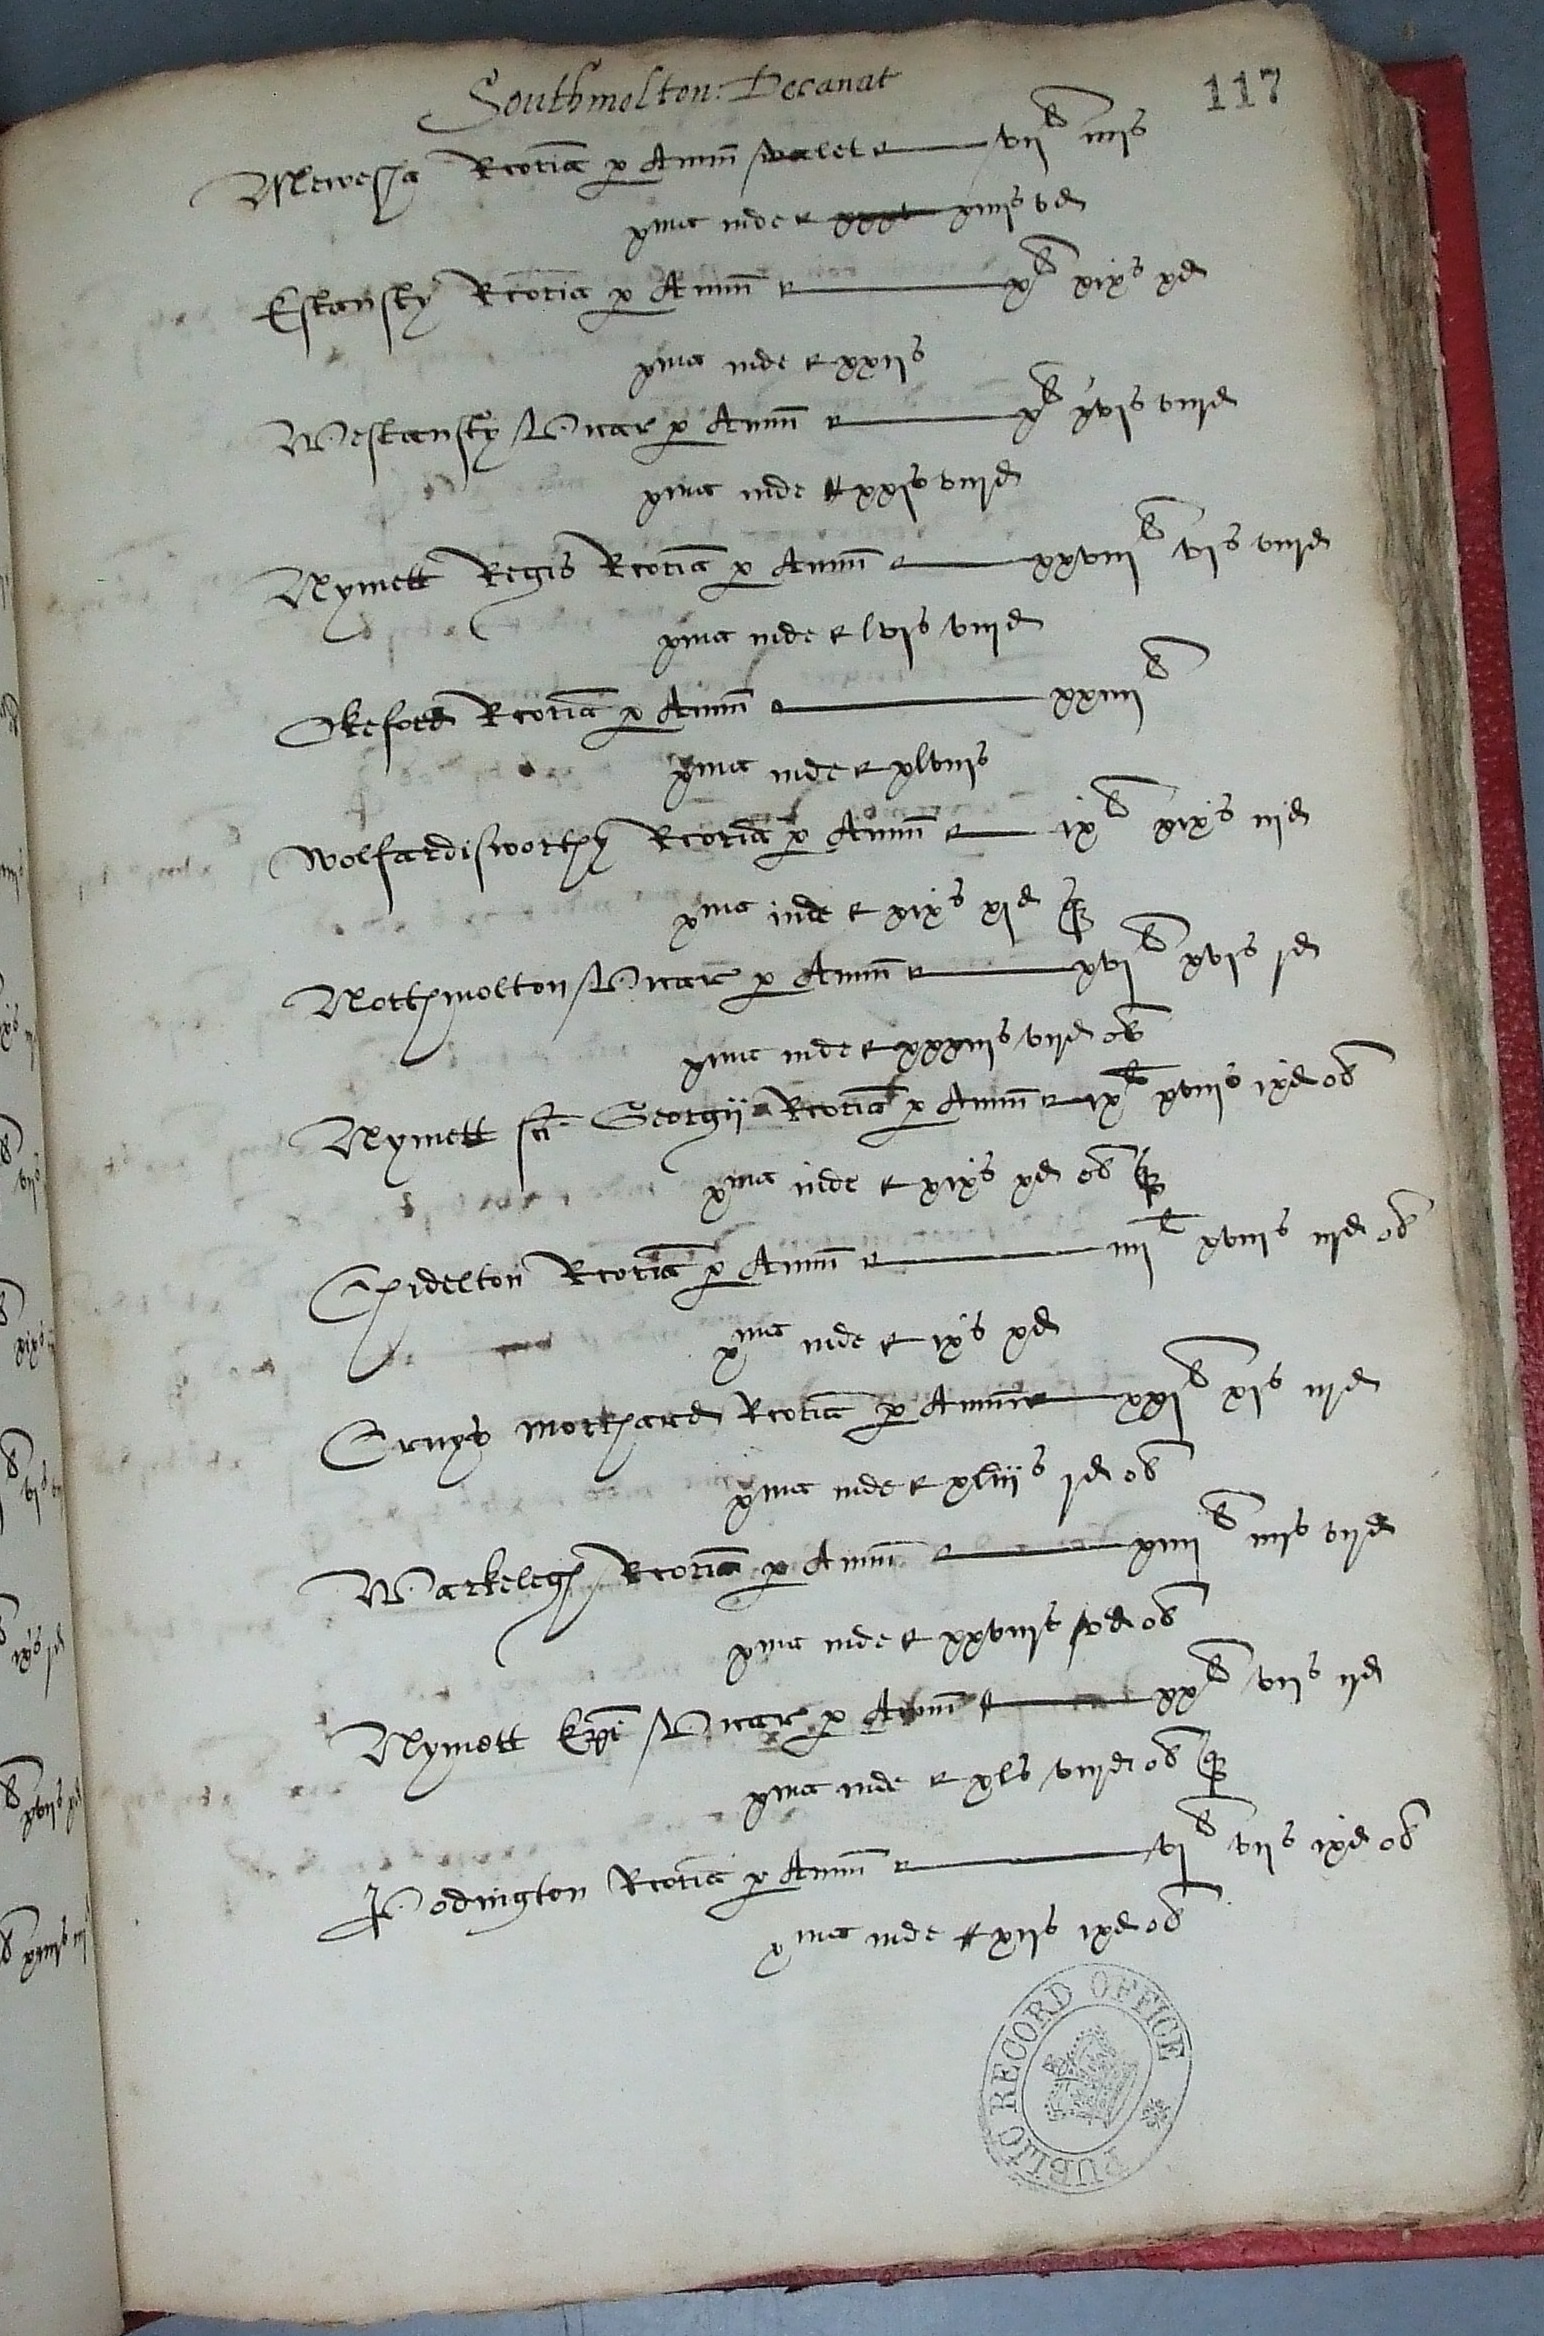 Southmolton: Decanat
117
Mewesha Rcoria p Annu valet vij li iiijs
xma inde xiiijs vd
Estansty Rcoria p Annu x li xixs xd
xma inde xxijs
Westansty Vicar p Annu x li xvis viijd
xma inde xxjs viijd
Nymett Regis Rcoria p Annu xxviij li vjs viijd
xma inde lvjs viijd
Okeford Rcoria p Annu xxiiij li
xma inde xlviijs
Wolfardisworthy Rcoria p Annu ix li xixs iijd
xma inde xixs xjd q
Northmolton Vicar p Annu xvj li xvjs jd
xma inde xxxiijs vijd ob
Nymett sci Georgij Rcoria p Annu ix li xviijs ixd ob
xma inde xixs xd ob q
Chidelton Rcoria p Annu iiij li xviijs iijd ob
xma inde ixs xd
Cruys Morchard Rcoria p Annu xxj li xjs iijd
xma inde xliijs jd ob
Warkelegh Rcoria p Annu xiiij li iiijs vijd
xma inde xxviijs vd ob
Nymett Epi Vicar p Annu xx li vijs ijd
xma inde xls viijd ob q
Podington Rcoria p Annu vj li vijs ixd ob
xma inde xijs ixd ob
PUBLIC RECORD OFFICE